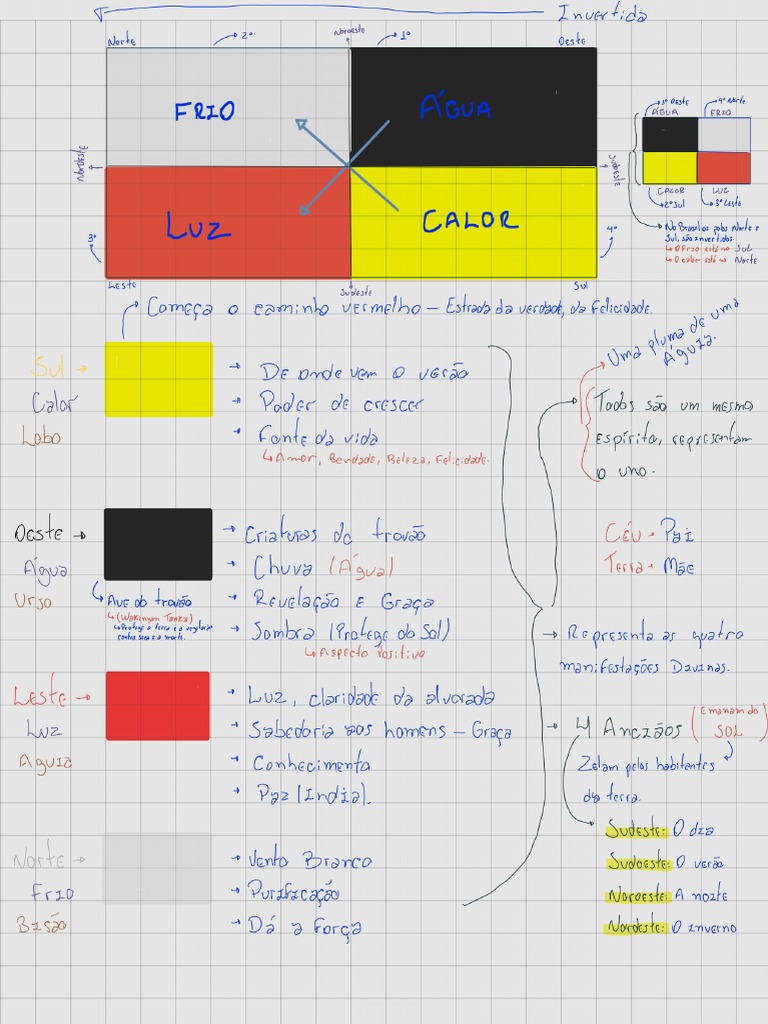 Invertida
Norte
2º
Noroeste
1º
Oeste
FRIO
ÁGUA
Nordeste
Sudoeste
LUZ
CALOR
3º
4º
Leste
Sudeste
Sul
1º Oeste
4º Norte
ÁGUA
FRIO
CALOR
LUZ
2º Sul
3º Leste
No Brasil os polos Norte e
Sul, são invertidos
↳ O Frio está no Sul
↳ O calor está no Norte
Começa o caminho vermelho – Estrada da verdade, da Felicidade.
Sul →
Calor
Lobo
→ De onde vem o verão
→ Poder de crescer
→ Fonte da vida
↳ Amor, Bondade, Beleza, Felicidade.
Uma pluma de uma
Águia.
Todos são um mesmo
espírito, representam
o uno.
Céu → Pai
Terra → Mãe
Oeste →
Água
Urso
Ave do trovão
↳ (Wakinyan Tanka)
↳ Protege a terra e a vegetação
contra seca e a morte.
→ Criaturas do trovão
→ Chuva (Água)
→ Revelação e Graça
→ Sombra (Protege do Sol)
↳ Aspecto Positivo
→ Representa as quatro
manifestações Divinas.
Leste →
Luz
Aguia
→ Luz, claridade da alvorada
→ Sabedoria aos homens – Graça
→ Conhecimento
→ Paz (India).
→ 4 Anciãos (Emanam do
SOL)
Zelam pelos habitantes
da terra.
Sudeste: O dia
Sudoeste: O verão
Noroeste: A noite
Nordeste: O inverno
Norte →
Frio
Bisão
→ Vento Branco
→ Purificação
→ Dá a força